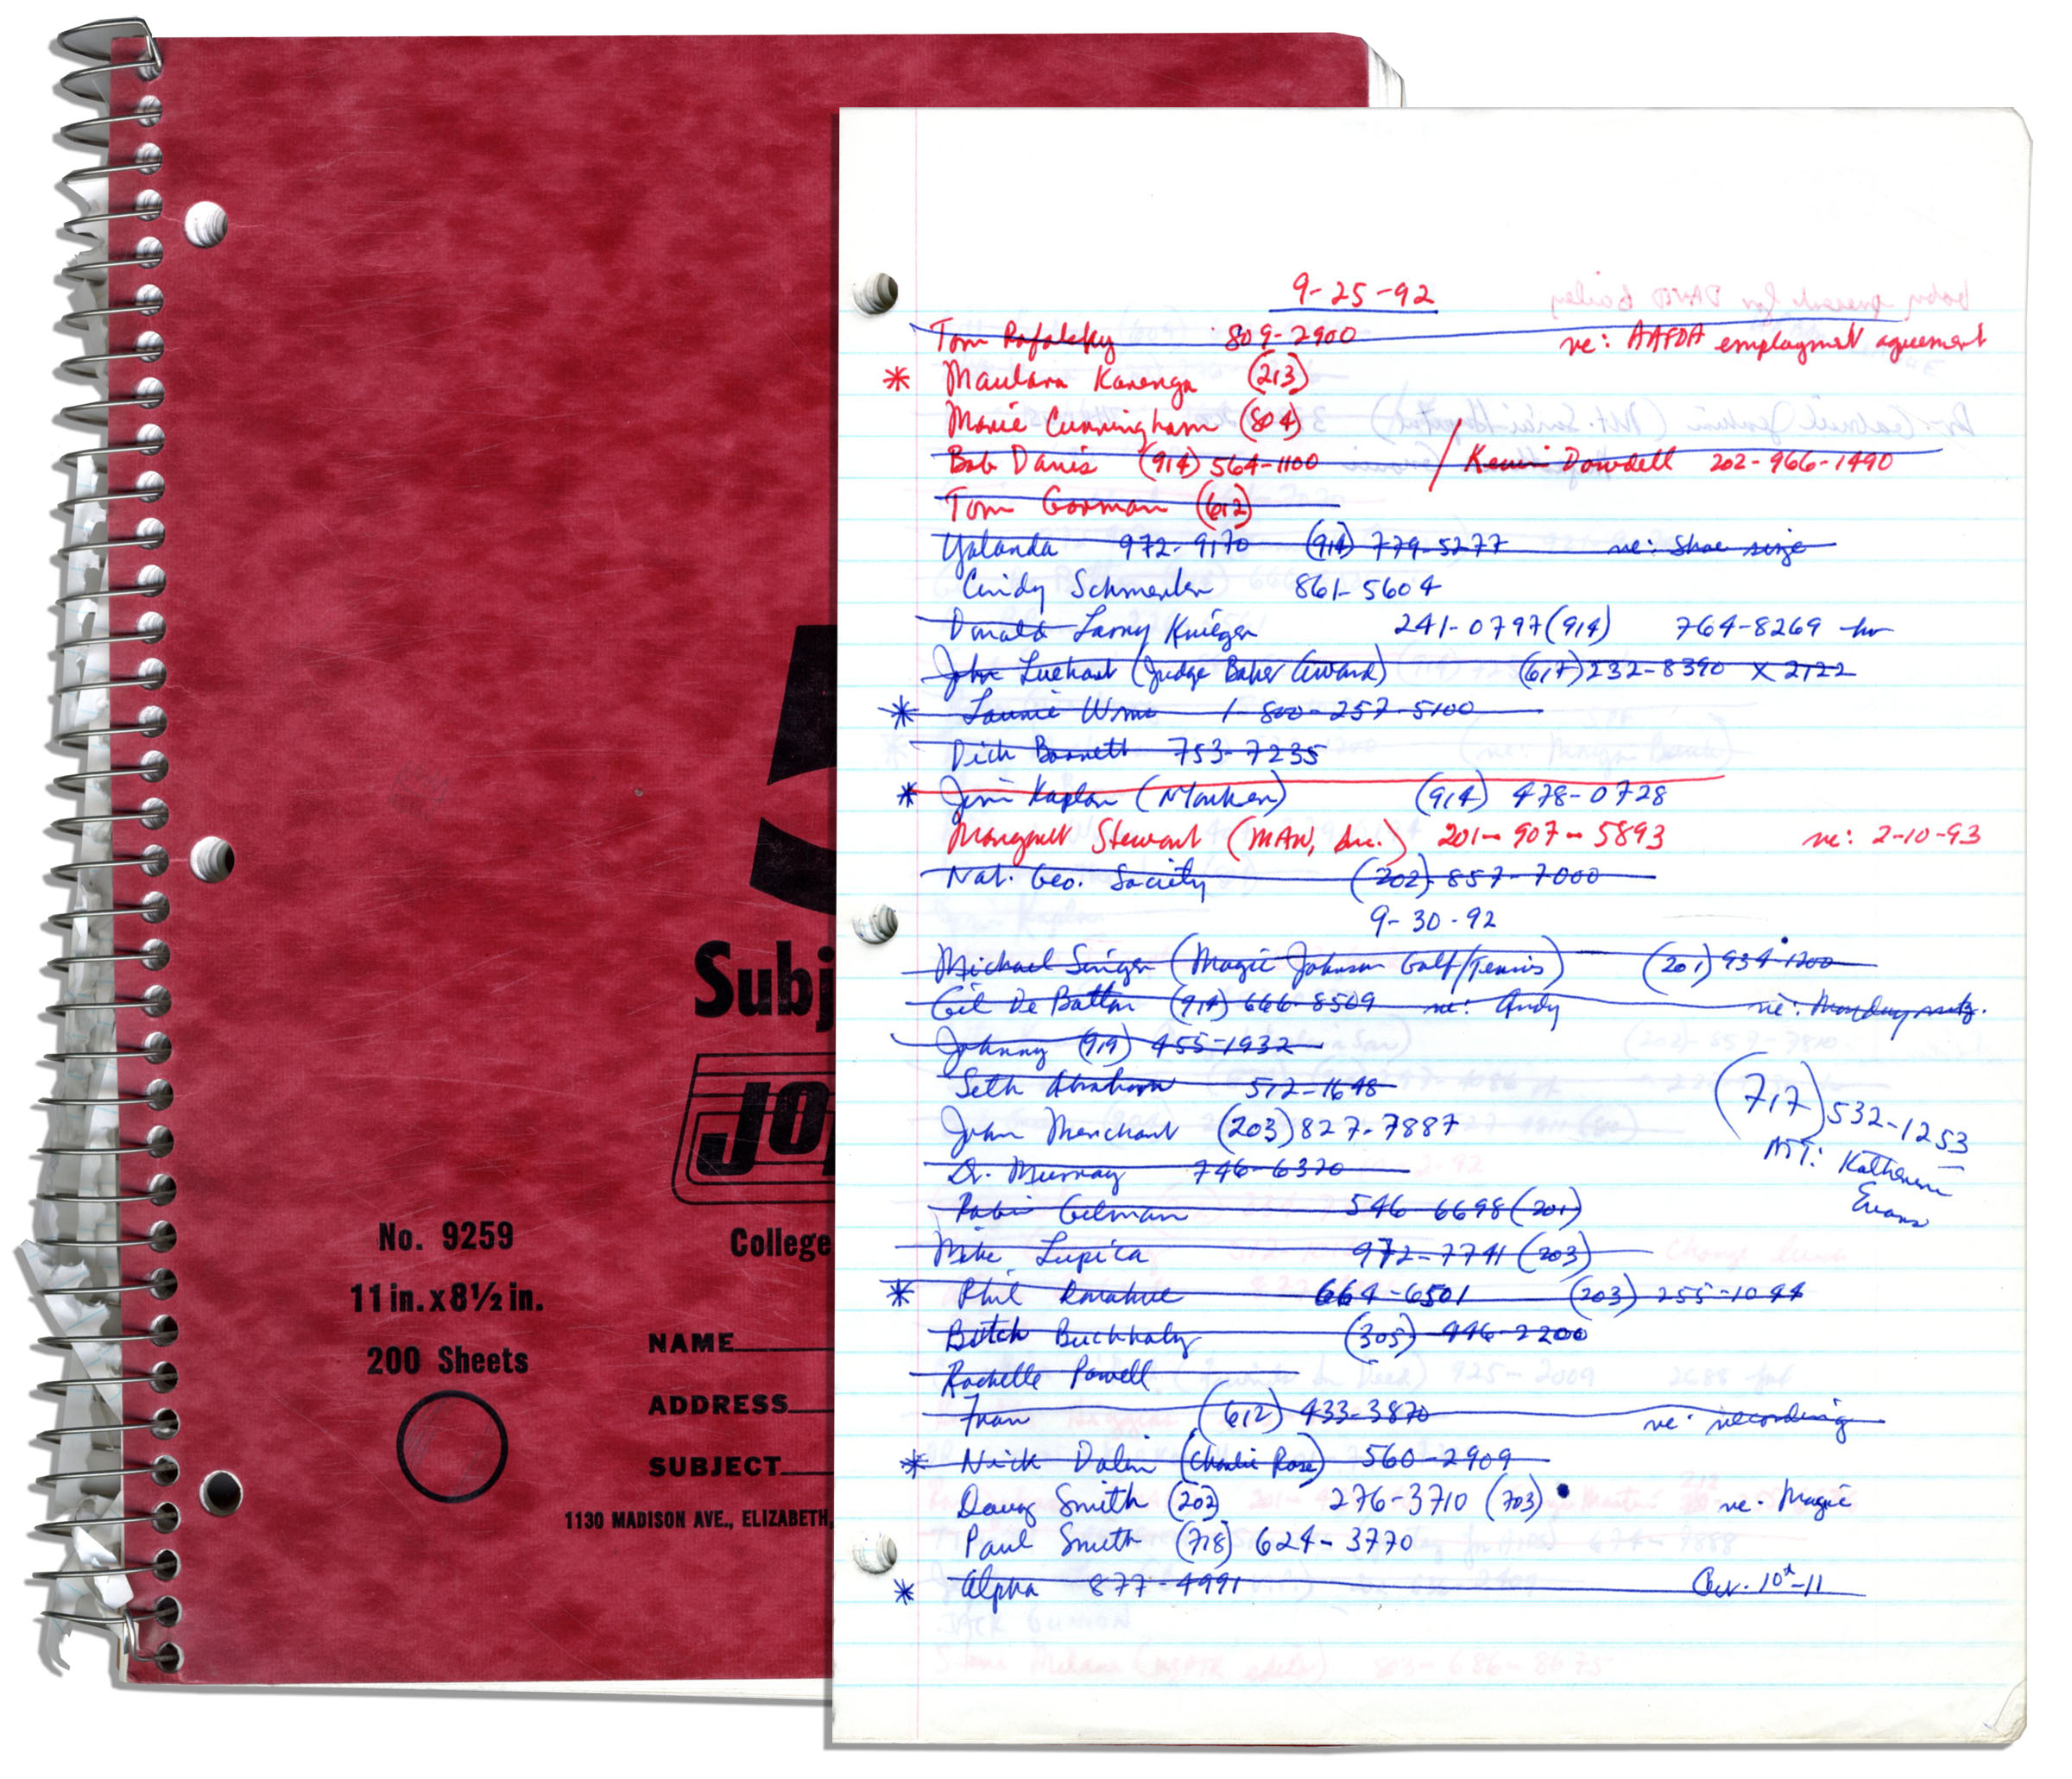 5
Subj
JOP
No. 9259
11 in. x 8½ in.
200 Sheets
College
NAME
ADDRESS
SUBJECT
1130 MADISON AVE., ELIZABETH,
9-25-92
Tom Rafalsky 809-2900 re: AAFDA employment agreement
* Maulana Karenga (213)
Marie Cunningham (804)
Bob Davis (914) 564-1100 / Kevin Dowdell 202-966-1490
Tom Gorman (612)
Yolanda 972-9170 (914) 779-5277 re: Shoe size
Cindy Schmerler 861-5604
Donald Larry Krieger 241-0797 (914) 764-8269
John (Judge Baker Award) (617) 232-8390 x 2122
* Laurie Wms 1-800-257-5100
Dick Barnett 753-7235
* Jim Kaplan (N Yorker) (914) 478-0728
Margaret Stewart (MAW, Inc.) 201-907-5893 re: 2-10-93
Nat. Geo. Society (202)-857-7000
9-30-92
Michael Singer (Magic Johnson Golf/Tennis) (201) 934-1200
Gil De Botton (914) 666-8509 re: Andy re: Monday mtg.
Johnny (919) 455-1932
Seth Abraham 512-1648
John Merchant (203) 827-7887
(717) 532-1253
Dr. Murray 746-6370
MT: Katherine
Evans
Gilman 546-6698 (201)
Mike Lupica 972-7741 (203)
* Phil Donahue 664-6501 (203) 255-1044
Butch Buchholz (305) 446-2200
Rochelle Powell
Fran (612) 433-3870 re: recording
* Nick Dolin (Charlie Rose) 560-2909
Doug Smith (202) 276-3710 (703) re: Magic
Paul Smith (718) 624-3770
* Alpha 877-4991 Oct. 10th-11